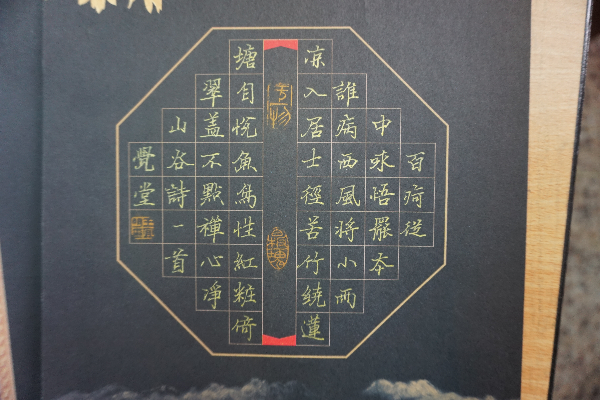 百疴從
中來悟罷本
誰病西風將小雨
凉入居士徑苦竹繞蓮
塘自悅魚鳥性紅粧倚
翠蓋不點禪心淨
山谷詩一首
覺堂